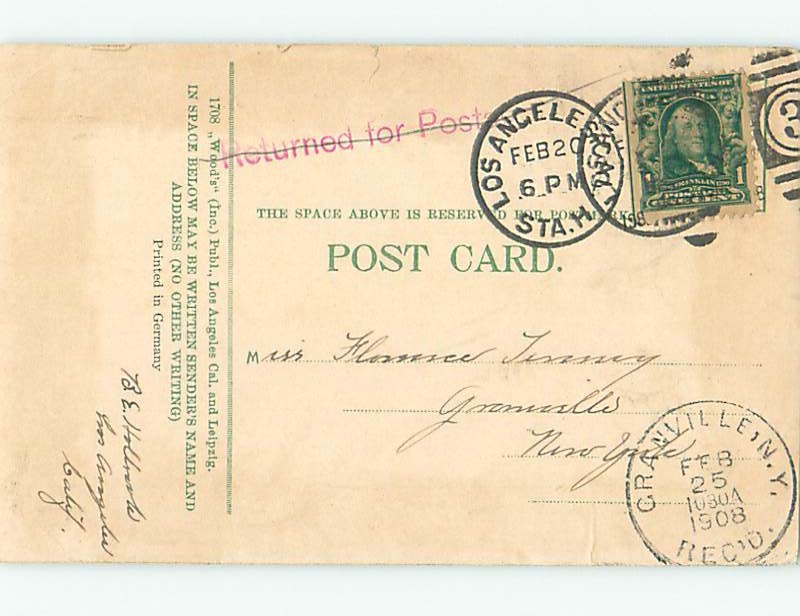 Returned for Post
LOS ANGELES, CAL.
FEB 20
6 P.M
STA. H
1908
3
UNITED STATES OF
FRANKLIN
POSTAGE
1 1
THE SPACE ABOVE IS RESERVED FOR POSTMARK
POST CARD.
Miss Florence Tenney
Granville
New York
GRANVILLE, N.Y.
FEB
25
1030A
1908
REC'D.
1708 „Wood's“ (Inc.) Publ., Los Angeles Cal. and Leipzig.
IN SPACE BELOW MAY BE WRITTEN SENDER'S NAME AND
ADDRESS (NO OTHER WRITING)
Printed in Germany
B. E. Holbrook
Los Angeles
Calif.